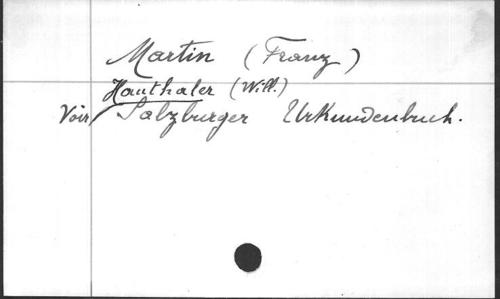 Martin (Franz)
Hauthaler (Will.)
Voir Salzburger Urkundenbuch.